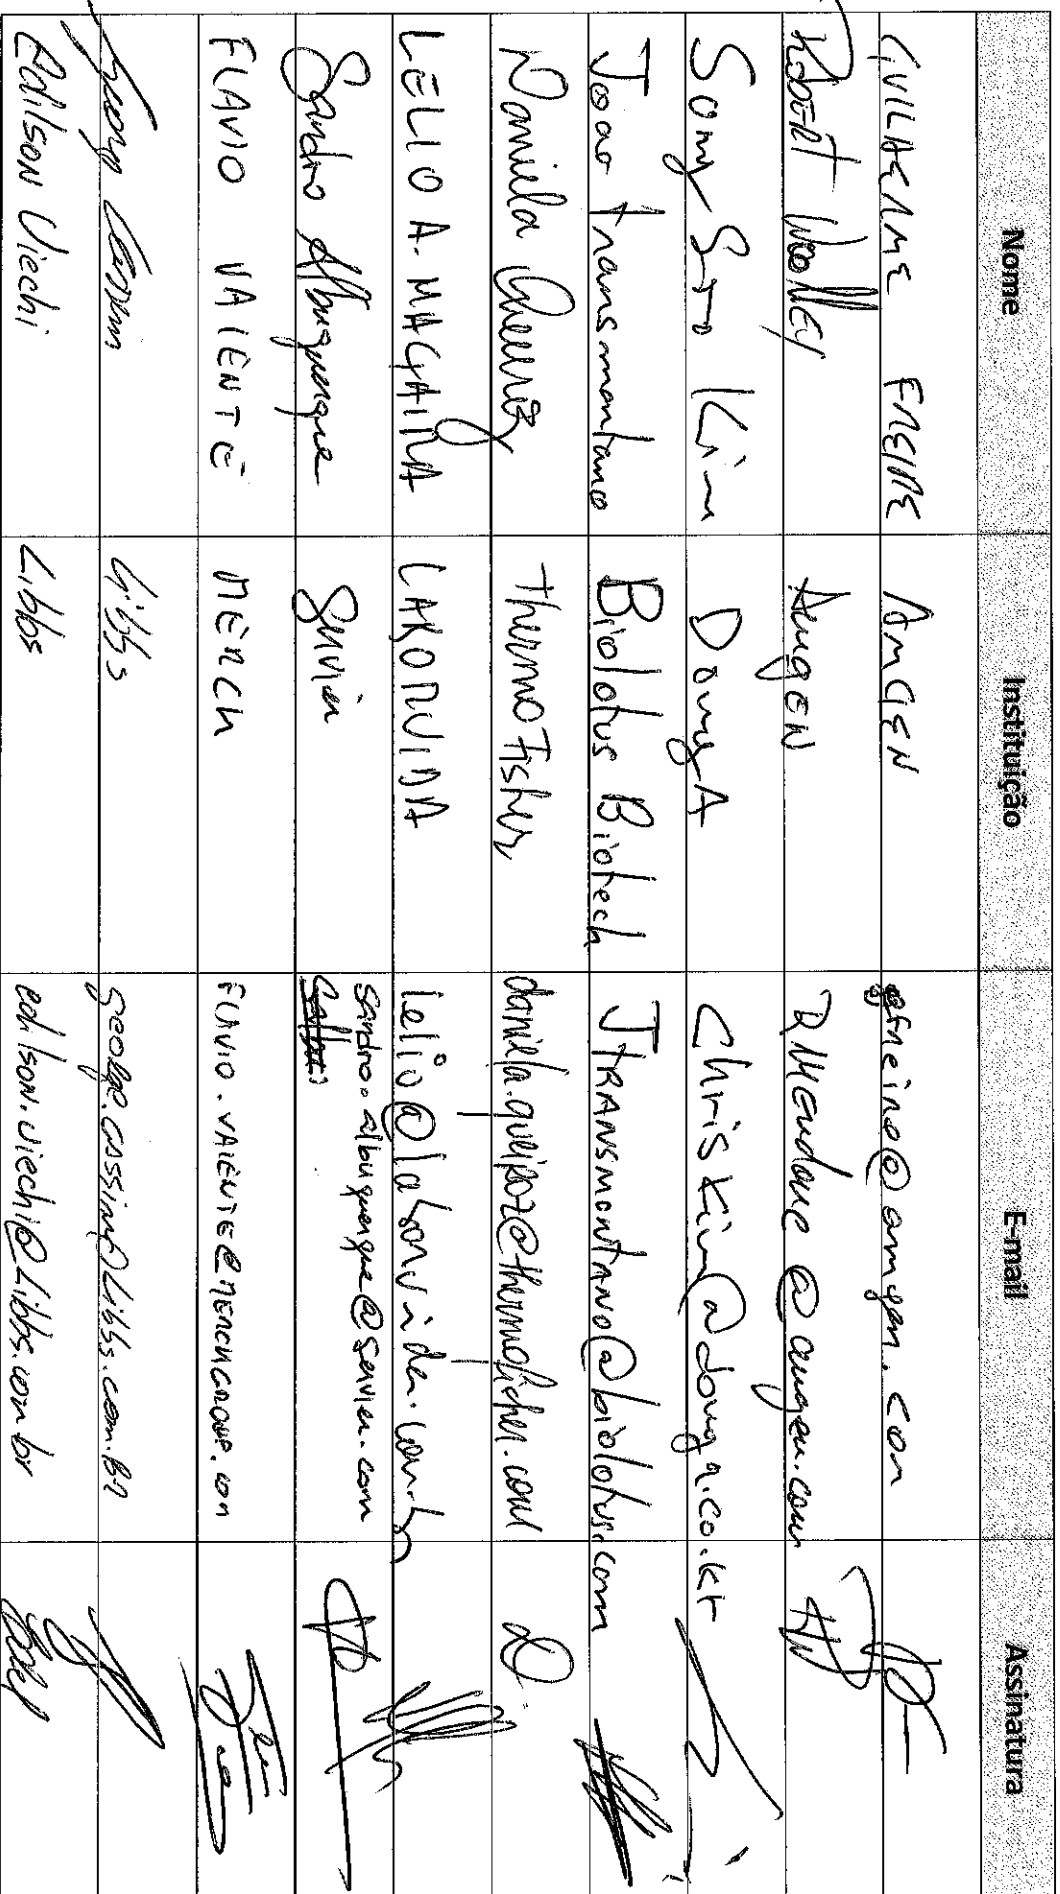 Nome Instituição E-mail Assinatura
GUILHERME FREIRE AMGEN gfreire@amgen.com
Robert Woolley AmgEN @amgen.com
Song Soo Kim DongA Chriskim@donga.co.kr
Joao Transmontano Biolotus Biotech JTRANSMONTANO@biolotus.com
Daniela Queiroz Thermo Fisher daniella.queiroz@thermofisher.com
LELIO A. MAÇAIRA LABORVIDA lelio@laborvida.com.br
Sandro Albuquerque Servier sandro.albuquerque@servier.com
FLAVIO VALENTE MERCK FLAVIO.VALENTE@MERCKGROUP.COM
George Cassim Libbs george.cassim@Libbs.com.BR
Edilson Viechi Libbs edilson.viechi@Libbs.com.br